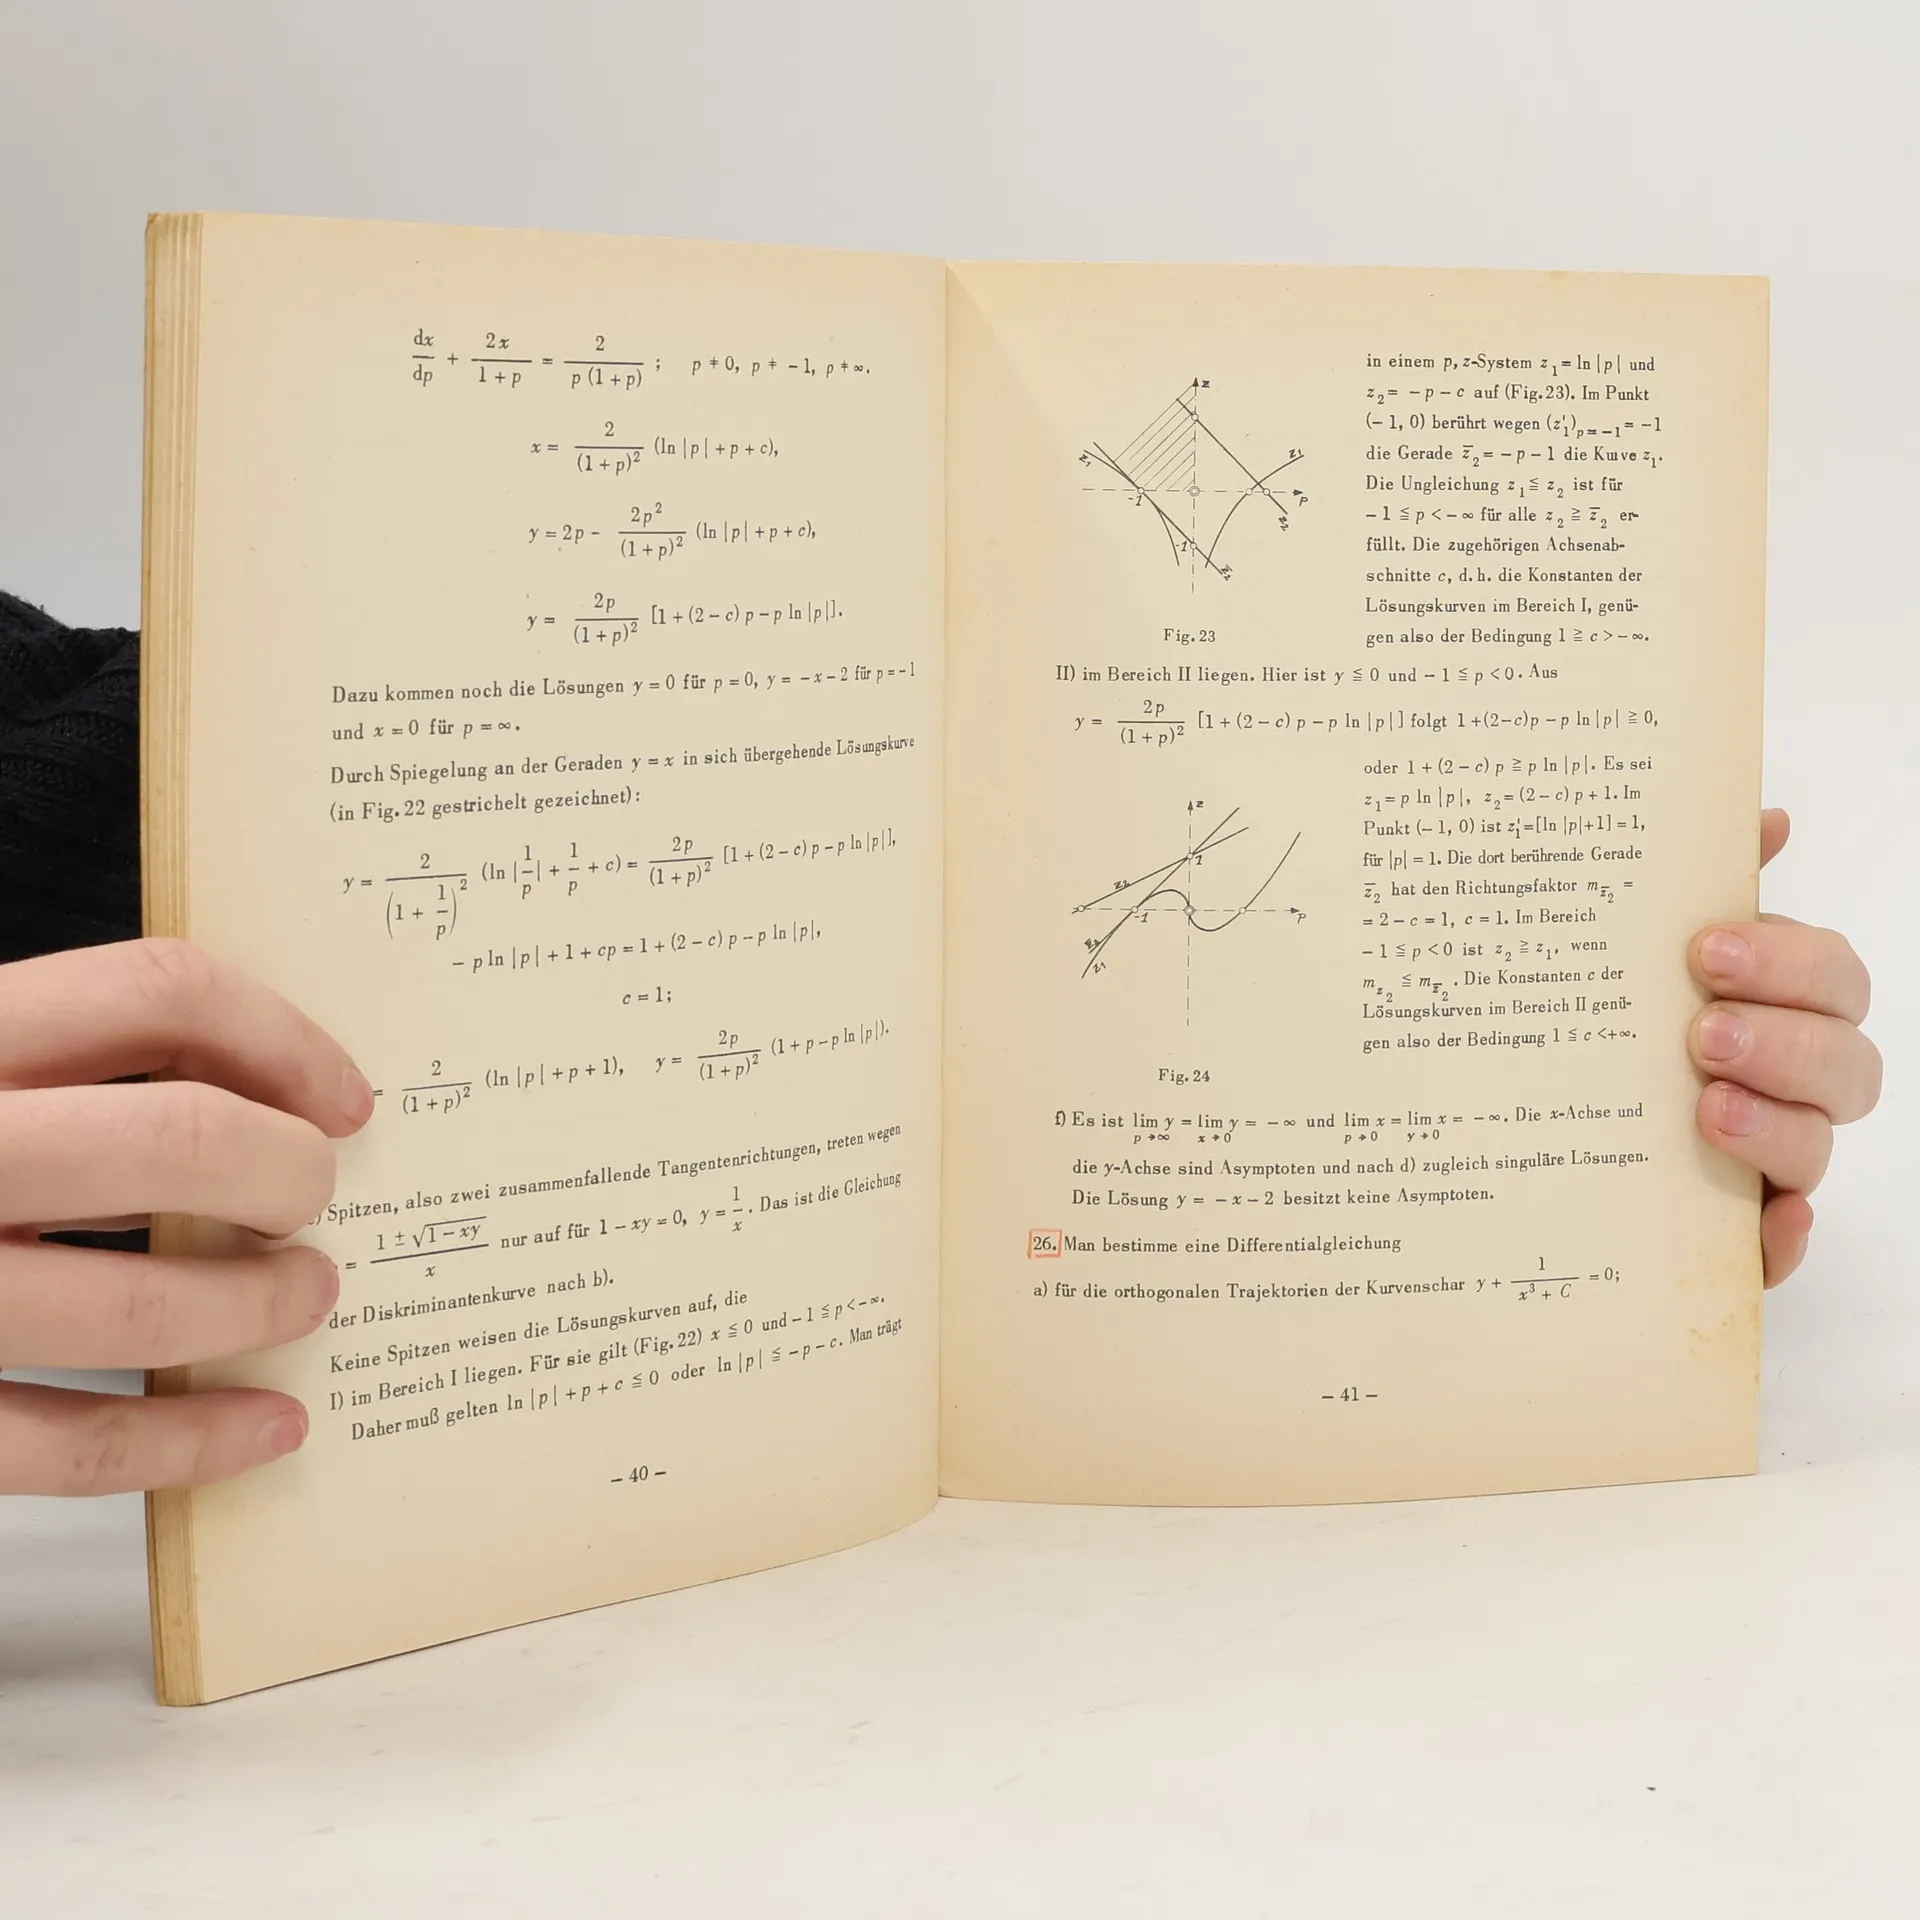 dx/dp + 2x/(1+p) = 2/(p(1+p)) ; p ≠ 0, p ≠ −1, p ≠ ∞.
x = 2/(1+p)² (ln |p| + p + c),
y = 2p − 2p²/(1+p)² (ln |p| + p + c),
y = 2p/(1+p)² [1 + (2 − c) p − p ln |p|].
Dazu kommen noch die Lösungen y = 0 für p = 0, y = − x − 2 für p = − 1
und x = 0 für p = ∞.
Durch Spiegelung an der Geraden y = x in sich übergehende Lösungskurve
(in Fig. 22 gestrichelt gezeichnet):
y = 2/(1 + 1/p)² (ln |1/p| + 1/p + c) = 2p/(1+p)² [1 + (2 − c) p − p ln |p|],
− p ln |p| + 1 + cp = 1 + (2 − c) p − p ln |p|,
c = 1;
= 2/(1+p)² (ln |p| + p + 1), y = 2p/(1+p)² (1 + p − p ln |p|).
) Spitzen, also zwei zusammenfallende Tangentenrichtungen, treten wegen
= (1 ± √(1 − xy))/x nur auf für 1 − xy = 0, y = 1/x. Das ist die Gleichung
der Diskriminantenkurve nach b).
Keine Spitzen weisen die Lösungskurven auf, die
I) im Bereich I liegen. Für sie gilt (Fig. 22) x ≦ 0 und − 1 ≦ p < − ∞.
Daher muß gelten ln |p| + p + c ≦ 0 oder ln |p| ≦ − p − c. Man trägt
− 40 −
in einem p, z-System z₁ = ln |p| und
z₂ = − p − c auf (Fig. 23). Im Punkt
(− 1, 0) berührt wegen (z₁')ₚ₌₋₁ = − 1
die Gerade z̄₂ = − p − 1 die Kurve z₁.
Die Ungleichung z₁ ≦ z₂ ist für
− 1 ≦ p < − ∞ für alle z₂ ≧ z̄₂ er-
füllt. Die zugehörigen Achsenab-
schnitte c, d. h. die Konstanten der
Lösungskurven im Bereich I, genü-
gen also der Bedingung 1 ≧ c > − ∞.
z
z₁
z₁
-1
p
z₂
-1
z̄₂
Fig. 23
II) im Bereich II liegen. Hier ist y ≦ 0 und − 1 ≦ p < 0. Aus
y = 2p/(1+p)² [1 + (2 − c) p − p ln |p|] folgt 1 + (2−c)p − p ln |p| ≧ 0,
oder 1 + (2 − c) p ≧ p ln |p|. Es sei
z₁ = p ln |p|, z₂ = (2 − c) p + 1. Im
Punkt (− 1, 0) ist z₁' = [ln |p| + 1] = 1,
für |p| = 1. Die dort berührende Gerade
z̄₂ hat den Richtungsfaktor m_z̄₂ =
= 2 − c = 1, c = 1. Im Bereich
− 1 ≦ p < 0 ist z₂ ≧ z₁, wenn
m_z₂ ≦ m_z̄₂. Die Konstanten c der
Lösungskurven im Bereich II genü-
gen also der Bedingung 1 ≦ c < +∞.
z
1
z₂
-1
p
z̄₂
z₁
Fig. 24
f) Es ist lim y = lim y = − ∞ und lim x = lim x = − ∞. Die x-Achse und
p → ∞ x → 0 p → 0 y → 0
die y-Achse sind Asymptoten und nach d) zugleich singuläre Lösungen.
Die Lösung y = − x − 2 besitzt keine Asymptoten.
26. Man bestimme eine Differentialgleichung
a) für die orthogonalen Trajektorien der Kurvenschar y + 1/(x³ + C) = 0;
− 41 −